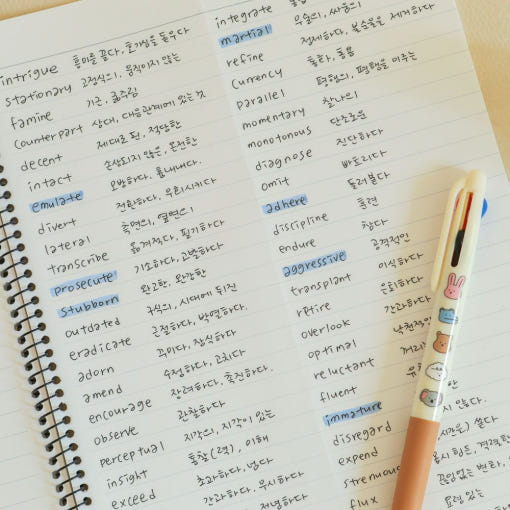 intrigue 흥미를 끌다, 호기심을 돋우다
stationary 고정식의, 움직이지 않는
famine 기근, 굶주림
counterpart 상대, 대응관계에 있는 것
decent 제대로 된, 적당한
intact 손상되지 않은, 온전한
emulate 모방하다, 흉내내다.
divert 전환하다, 우회시키다
lateral 측면의, 옆면의
transcribe 옮겨적다, 필기하다
prosecute 기소하다, 고발하다
stubborn 완고한, 완강한
outdated 구식의, 시대에 뒤진
eradicate 근절하다, 박멸하다.
adorn 꾸미다, 장식하다
amend 수정하다, 고치다
encourage 장려하다, 촉진하다.
observe 관찰하다
perceptual 지각의, 지각이 있는
insight 통찰(력), 이해
exceed 초과하다, 넘다
간과하다, 무시하다
integrate
martial 무술의, 싸움의
refine 정제하다, 불순물을 제거하다
currency 통화, 통용
parallel 평행의, 평행을 이루는
momentary 찰나의
monotonous 단조로운
diagnose 진단하다
omit 빠트리다
adhere 들러붙다
discipline 훈련
endure 참다
aggressive 공격적인
transplant 이식하다
retire 은퇴하다
overlook 간과하다
optimal
reluctant
fluent
immature
disregard
expend
strenuous
flux